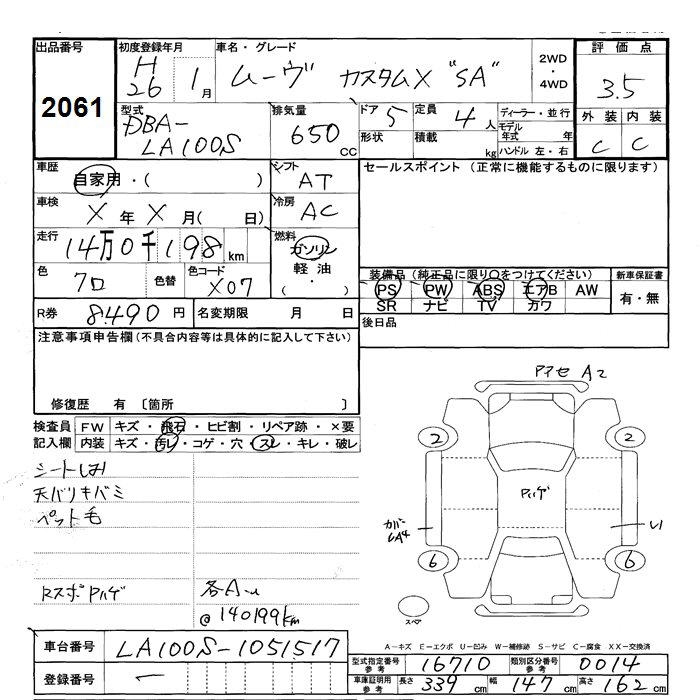 出品番号 初度登録年月 車名・グレード 評価点
2061
H26 1月 ムーヴ カスタムX "SA" 2WD・4WD 3.5
型式 DBA-LA100S 排気量 650 CC
ドア 5 形状 定員 4人 積載 kg
ディーラー・並行 モデル年式 年 ハンドル 左・右
外装 内装
C C
車歴 自家用・( ) シフト AT
車検 X年X月( 日) 冷房 AC
走行 14万0千198km 燃料 ガソリン 軽油 ・
色 クロ 色替 色コード X07
R券 8490円 名変期限 月 日
セールスポイント (正常に機能するものに限ります)
装備品 (純正品に限り○をつけてください) 新車保証書
PS PW ABS エアB AW 有・無
SR ナビ TV カワ
後日品
注意事項申告欄(不具合内容等は具体的に記入して下さい)
修復歴 有 〔箇所 〕
検査員記入欄 FW キズ・飛石・ヒビ割・リペア跡・×要
内装 キズ・汚レ・コゲ・穴・スレ・キレ・破レ
シートしみ
天バリキバミ
ペット毛
RスポPハゲ 各A-u
@140199km
アクセ A2
2 2
Pハゲ
カバーUA4
6 6
スペア
A-キズ E-エクボ U-凹み W-補修跡 S-サビ C-腐食 XX-交換済
車台番号 LA100S-1051517
登録番号 -
型式指定番号 参考 16710 類別区分番号 参考 0014
車庫証明用 参考 長さ 339 cm 幅 147 cm 高さ 162 cm